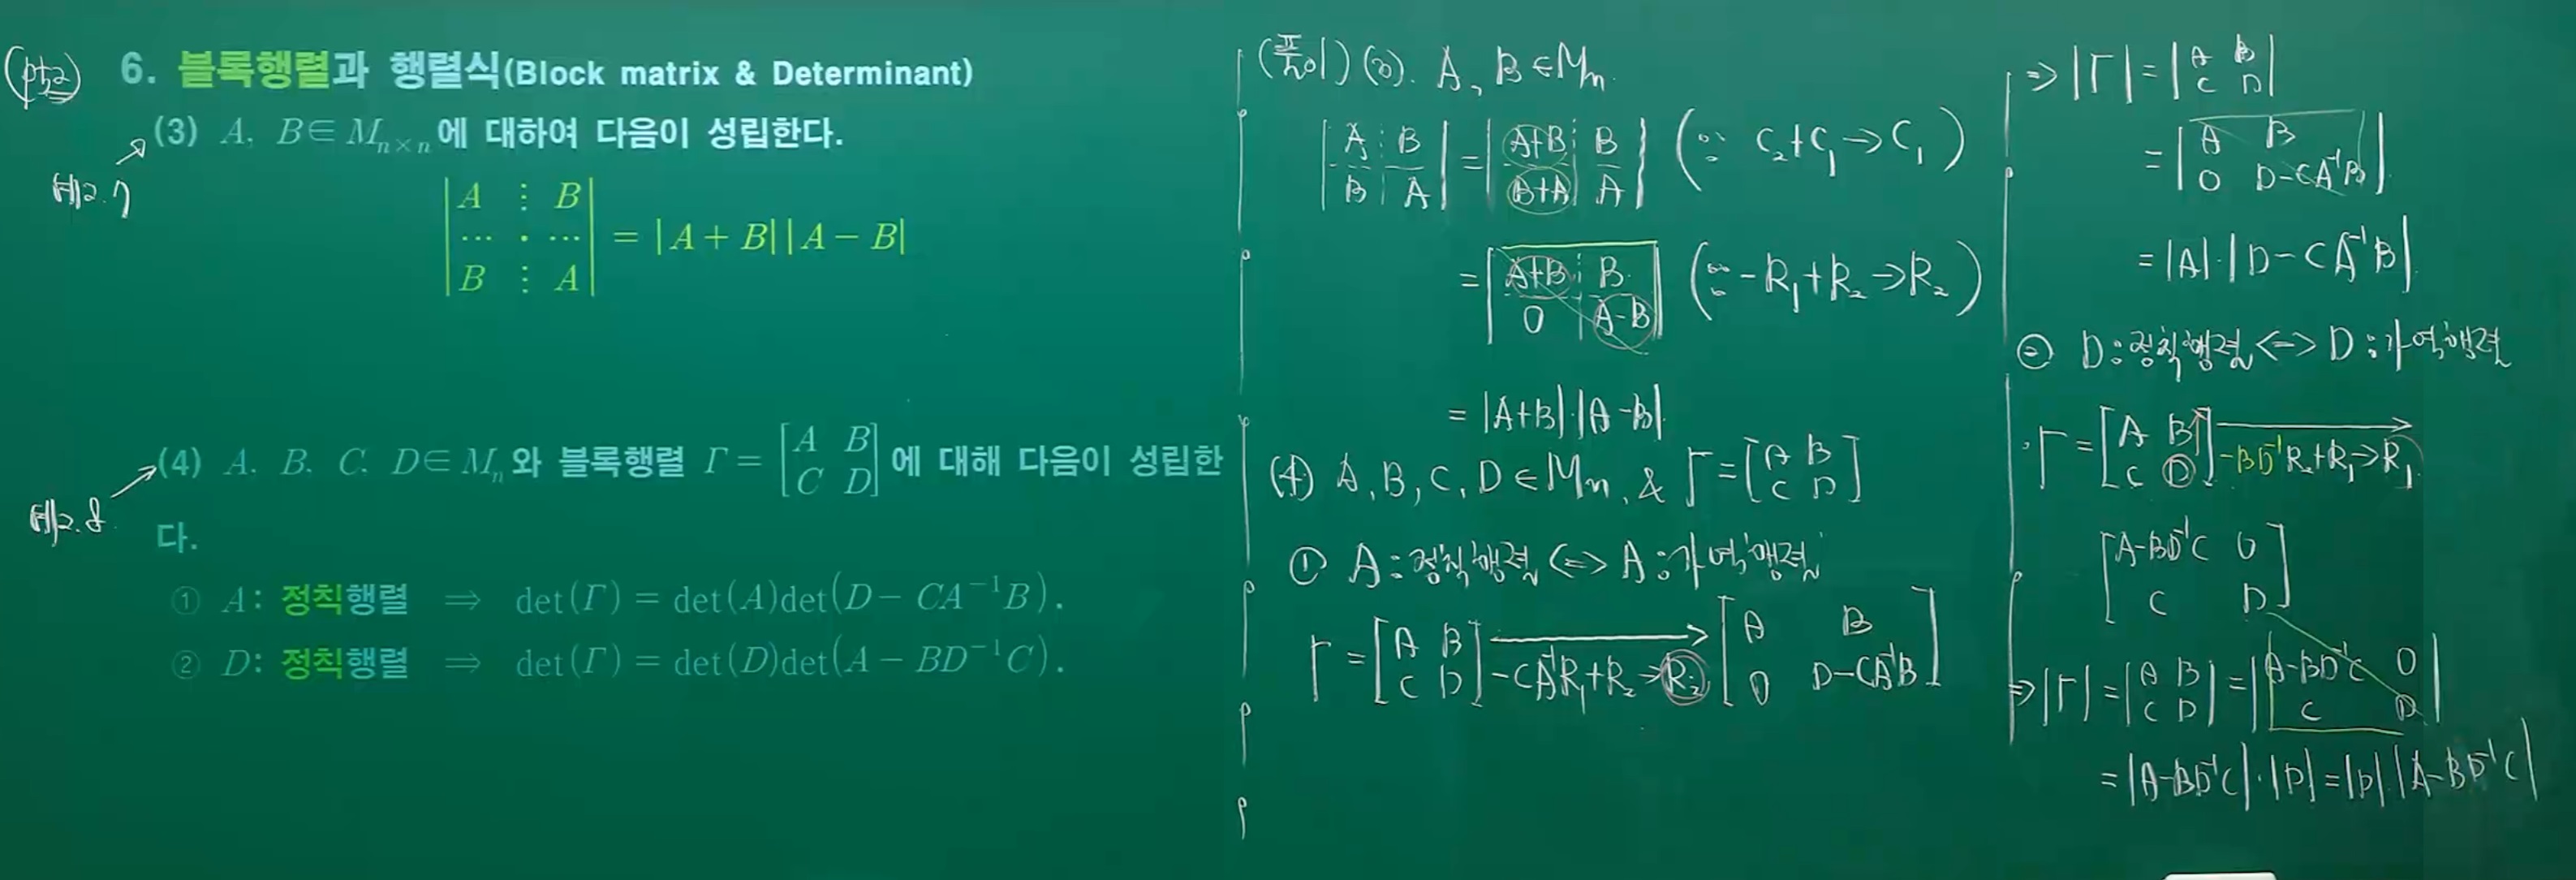 (pt2)
6. 블록행렬과 행렬식(Block matrix & Determinant)
(3) A, B∈M_{n×n}에 대하여 다음이 성립한다.
예2.7
|A ⋮ B|
|⋯ · ⋯| = |A+B||A−B|
|B ⋮ A|
(4) A, B, C, D∈M_n와 블록행렬 Γ = [A B; C D]에 대해 다음이 성립한
예2.8
다.
① A: 정칙행렬 ⇒ det(Γ) = det(A)det(D − CA⁻¹B).
② D: 정칙행렬 ⇒ det(Γ) = det(D)det(A − BD⁻¹C).
(풀이) (3). A, B ∈ M_n.
|A B; B A| = |A+B B; B+A A| (∵ C₂+C₁→C₁)
= |A+B B; 0 A-B| (∵ -R₁+R₂→R₂)
= |A+B|·|A-B|.
(4) A, B, C, D ∈ M_n, & Γ = [A B; C D]
① A : 정칙행렬 <=> A : 가역행렬
Γ = [A B; C D] → -CA⁻¹R₁+R₂→R₂ [A B; 0 D-CA⁻¹B]
⇒ |Γ| = |A B; C D|
= |A B; 0 D-CA⁻¹B|
= |A|·|D-CA⁻¹B|.
② D : 정칙행렬 <=> D : 가역행렬
Γ = [A B; C D] → -BD⁻¹R₂+R₁→R₁
[A-BD⁻¹C 0; C D]
⇒ |Γ| = |A B; C D| = |A-BD⁻¹C 0; C D|
= |A-BD⁻¹C|·|D| = |D||A-BD⁻¹C|